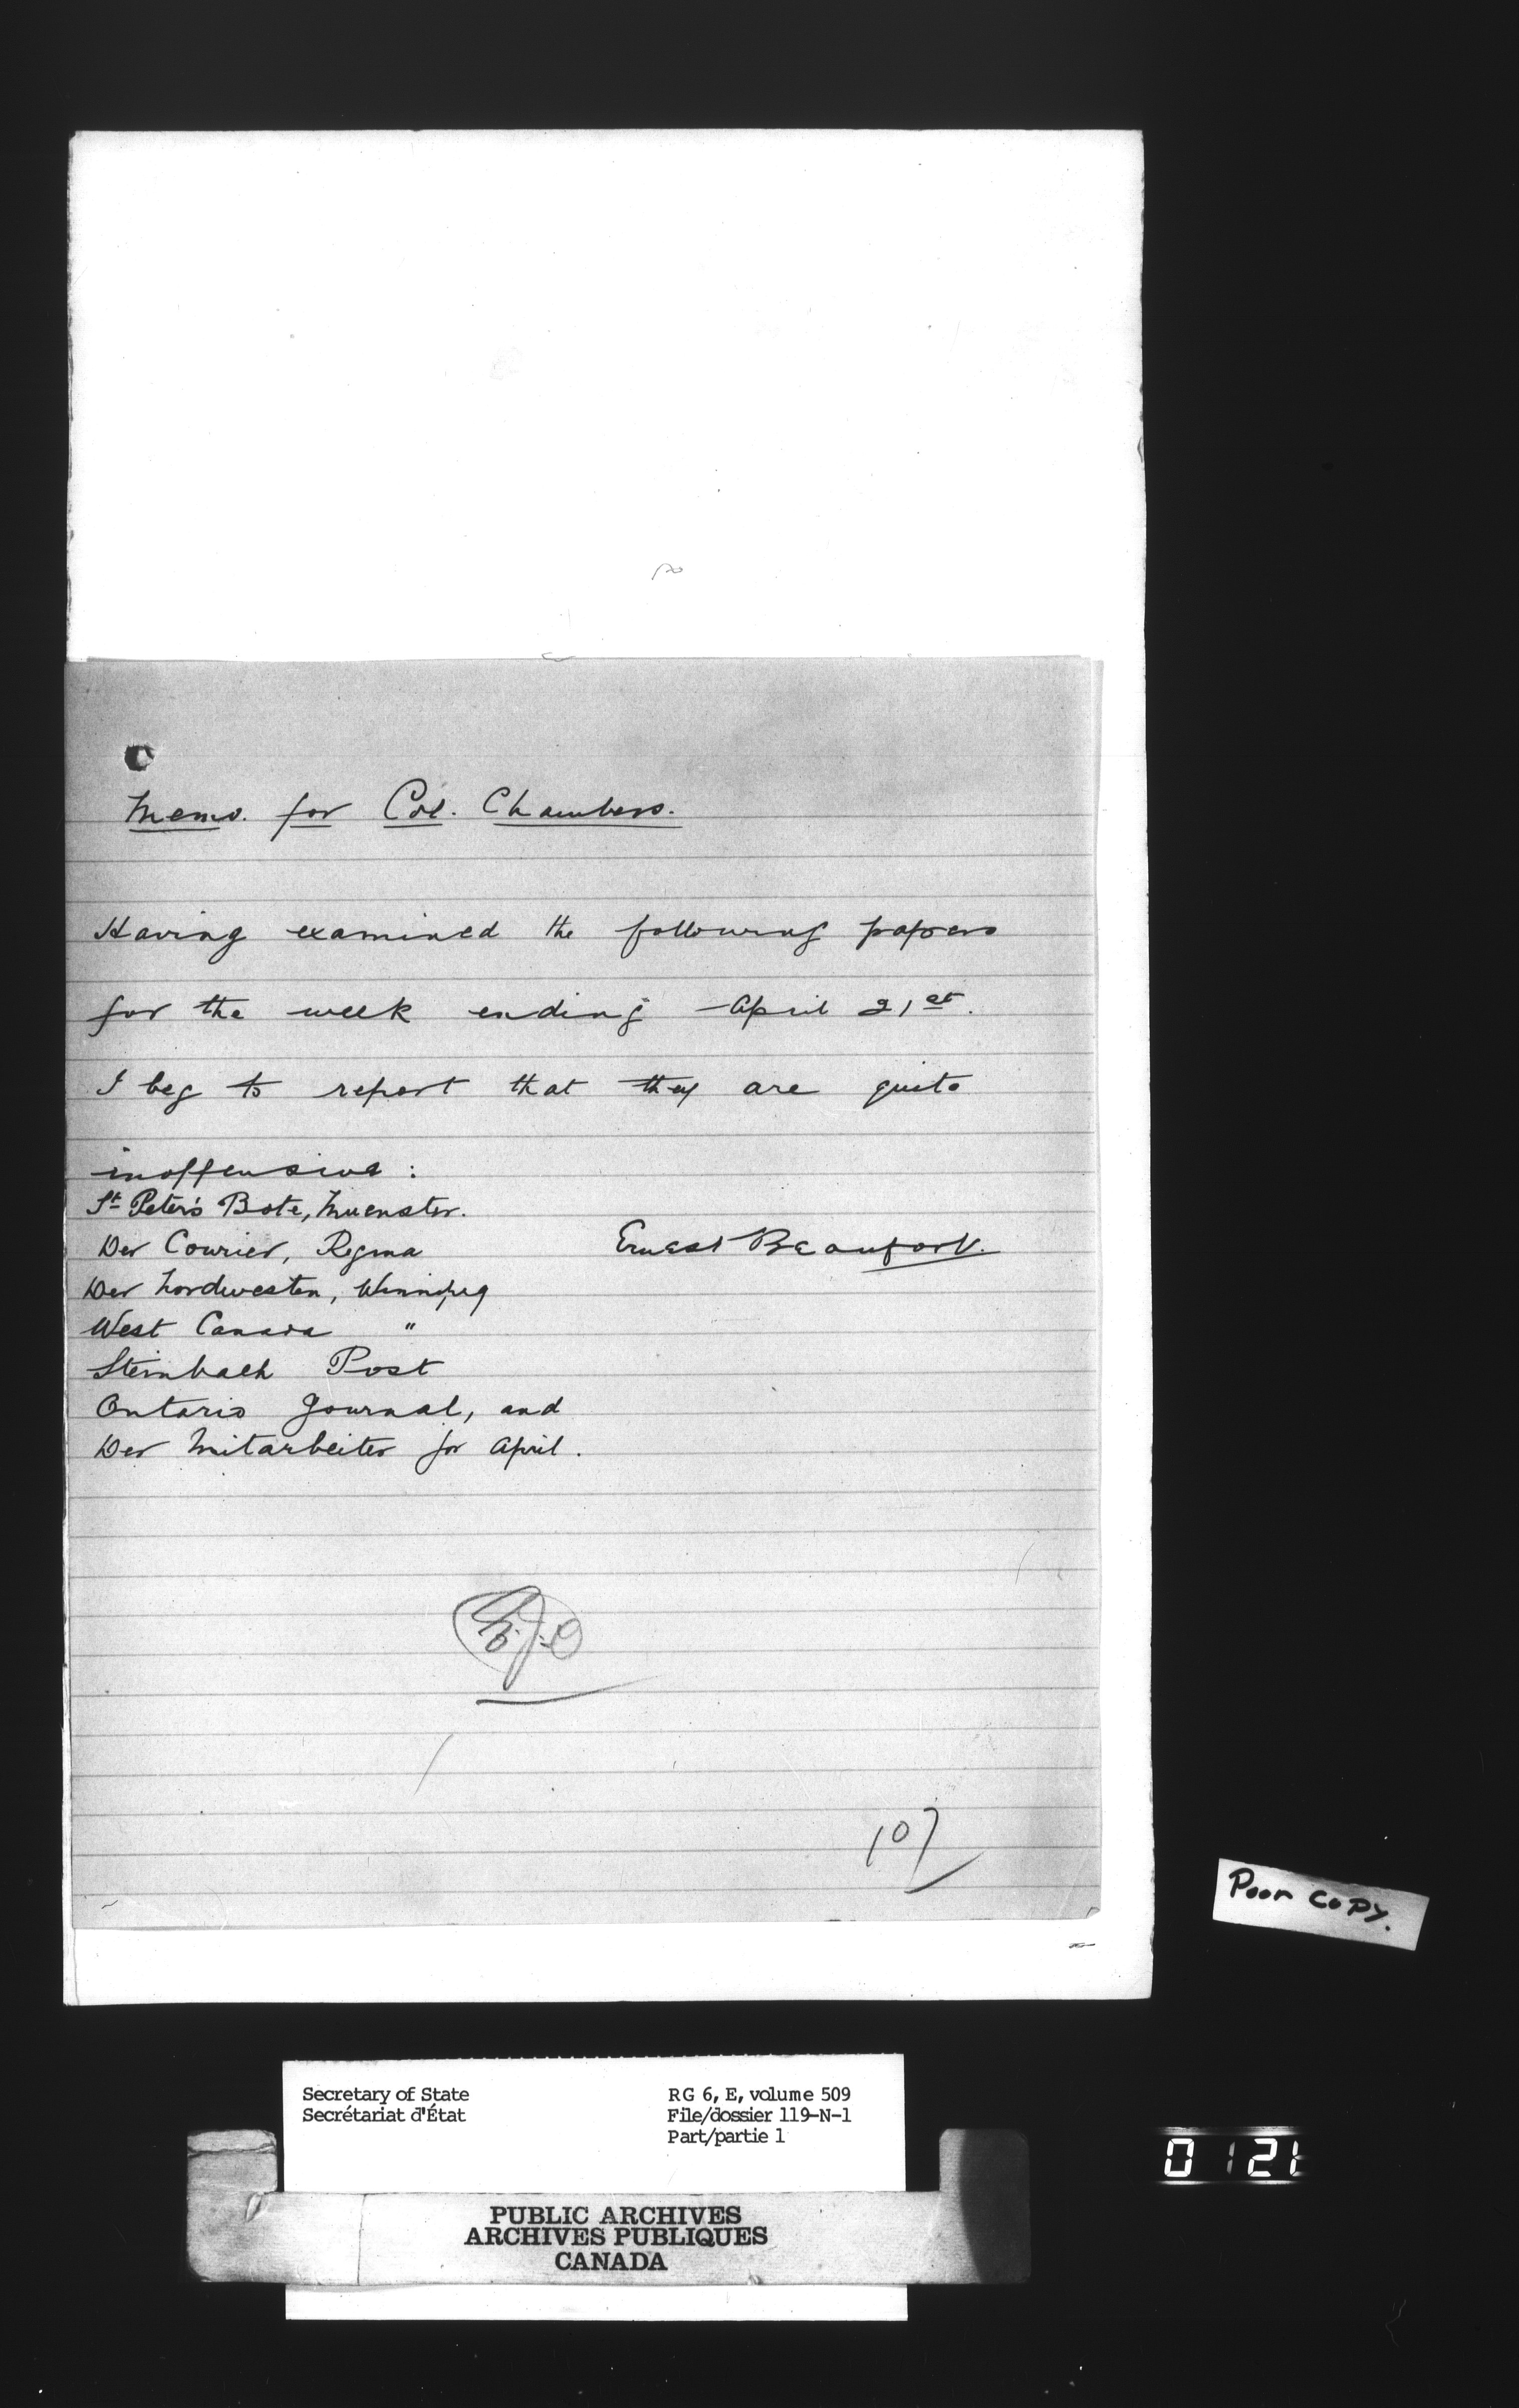 Memo. for Col. Chambers.
Having examined the following papers
for the week ending April 21st.
I beg to report that they are quite
inoffensive:
St Peter's Bote, Muenster.
Der Courier, Regina
Ernest Beaufort.
Der Nordwesten, Winnipeg
West Canada "
Steinbach Post
Ontario Journal, and
Der Mitarbeiter for April.
107
Poor Copy.
Secretary of State
Secrétariat d'État
RG 6, E, volume 509
File/dossier 119-N-1
Part/partie 1
PUBLIC ARCHIVES
ARCHIVES PUBLIQUES
CANADA
0121